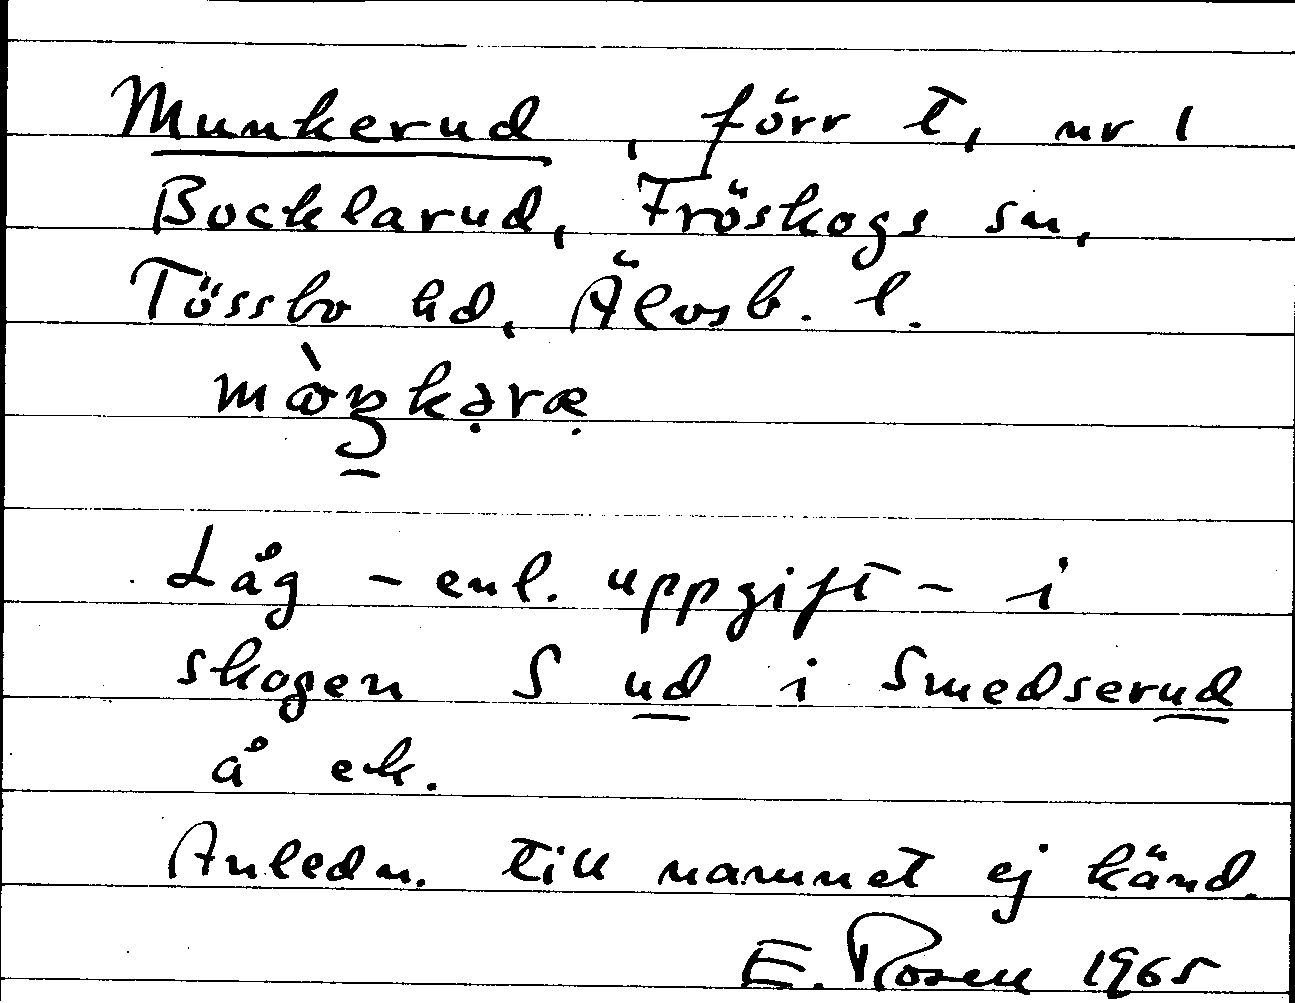 Munkerud, förr t, nr 1
Bocklarud, Fröskogs sn,
Tössbo hd, Älvsb. l.
Låg - enl. uppgift - i
skogen S ud i Smedserud
å ek.
Anledn. till namnet ej känd.
E. Rosen 1965